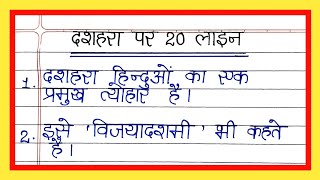 दशहरा पर 20 लाइन
1. दशहरा हिन्दुओं का एक
प्रमुख त्योहार है।
2. इसे 'विजयादशमी' भी कहते
हैं।